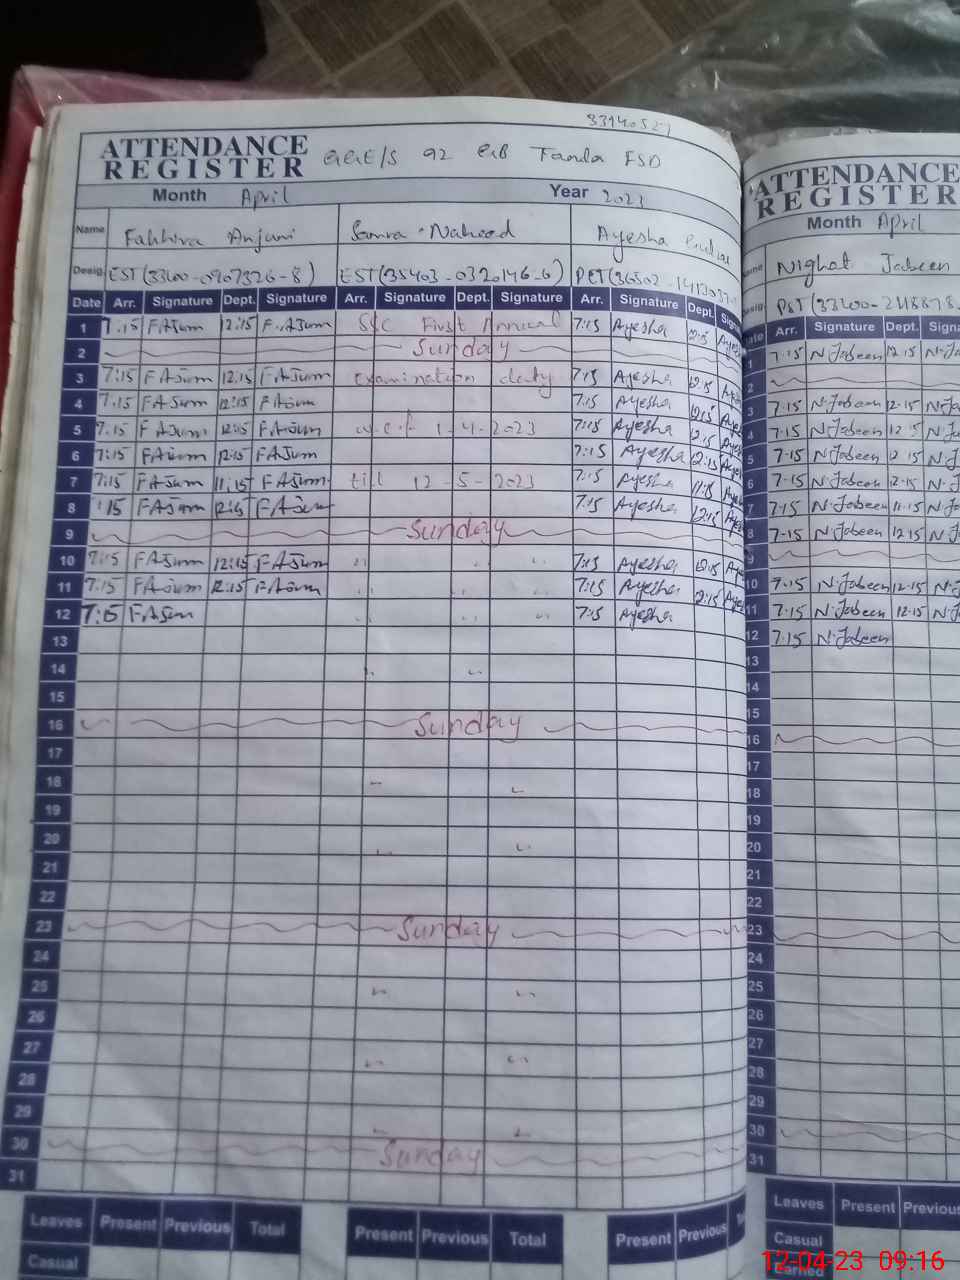 33140527
ATTENDANCE
REGISTER
92 GB Tanda FSD
Month April Year 2023
Name Fakhira Anjum Samra Naheed Ayesha
Desig: EST (33100-0907326-8) EST (35403-0320146-6) PET (
Date Arr. Signature Dept. Signature Arr. Signature Dept. Signature Arr. Signature Dept.
1 7:15 F.AJum 12:15 F.AJum SSC First Annual 7:15 Ayesha 12:15
2 Sunday
3 7:15 F AJum 12:15 F AJum examination duty 7:15 Ayesha 12:15
4 7:15 F AJum 12:15 F AJum 7:15 Ayesha 12:15
5 7:15 F AJum 12:15 F AJum w.e.f 1-4-2023 7:15 Ayesha 12:15
6 7:15 F AJum 12:15 F AJum 7:15 Ayesha 12:15
7 7:15 F AJum 11:15 F AJum till 12-5-2023 7:15 Ayesha 11:15
8 F AJum 12:15 F AJum 7:15 Ayesha 12:15
9 Sunday
10 7:15 F AJum 12:15 F AJum 7:15 Ayesha 12:15
11 7:15 F AJum 12:15 F AJum 7:15 Ayesha 12:15
12 7:15 F AJum 7:15 Ayesha
13
14
15
16 Sunday
17
18
19
20
21
22
23 Sunday
24
25
26
27
28
29
30 Sunday
31
Leaves Present Previous Total Present Previous Total Present Previous
Casual
ATTENDANCE
REGISTER
Month April
Nighat Jabeen
PST (33100-
Arr. Signature Dept.
1 7:15 N.Jabeen 12:15
2
3 7:15 N.Jabeen 12:15
4 7:15 N.Jabeen 12:15
5 7:15 N.Jabeen 12:15
6 7:15 N.Jabeen 12:15
7 7:15 N.Jabeen 11:15
8 7:15 N.Jabeen 12:15
9
10 7:15 N.Jabeen 12:15
11 7:15 N.Jabeen 12:15
12 7:15 N.Jabeen
13
14
15
16
17
18
19
20
21
22
23
24
25
26
27
28
29
30
31
Leaves Present Previous
Casual
Earned
12-04-23 09:16